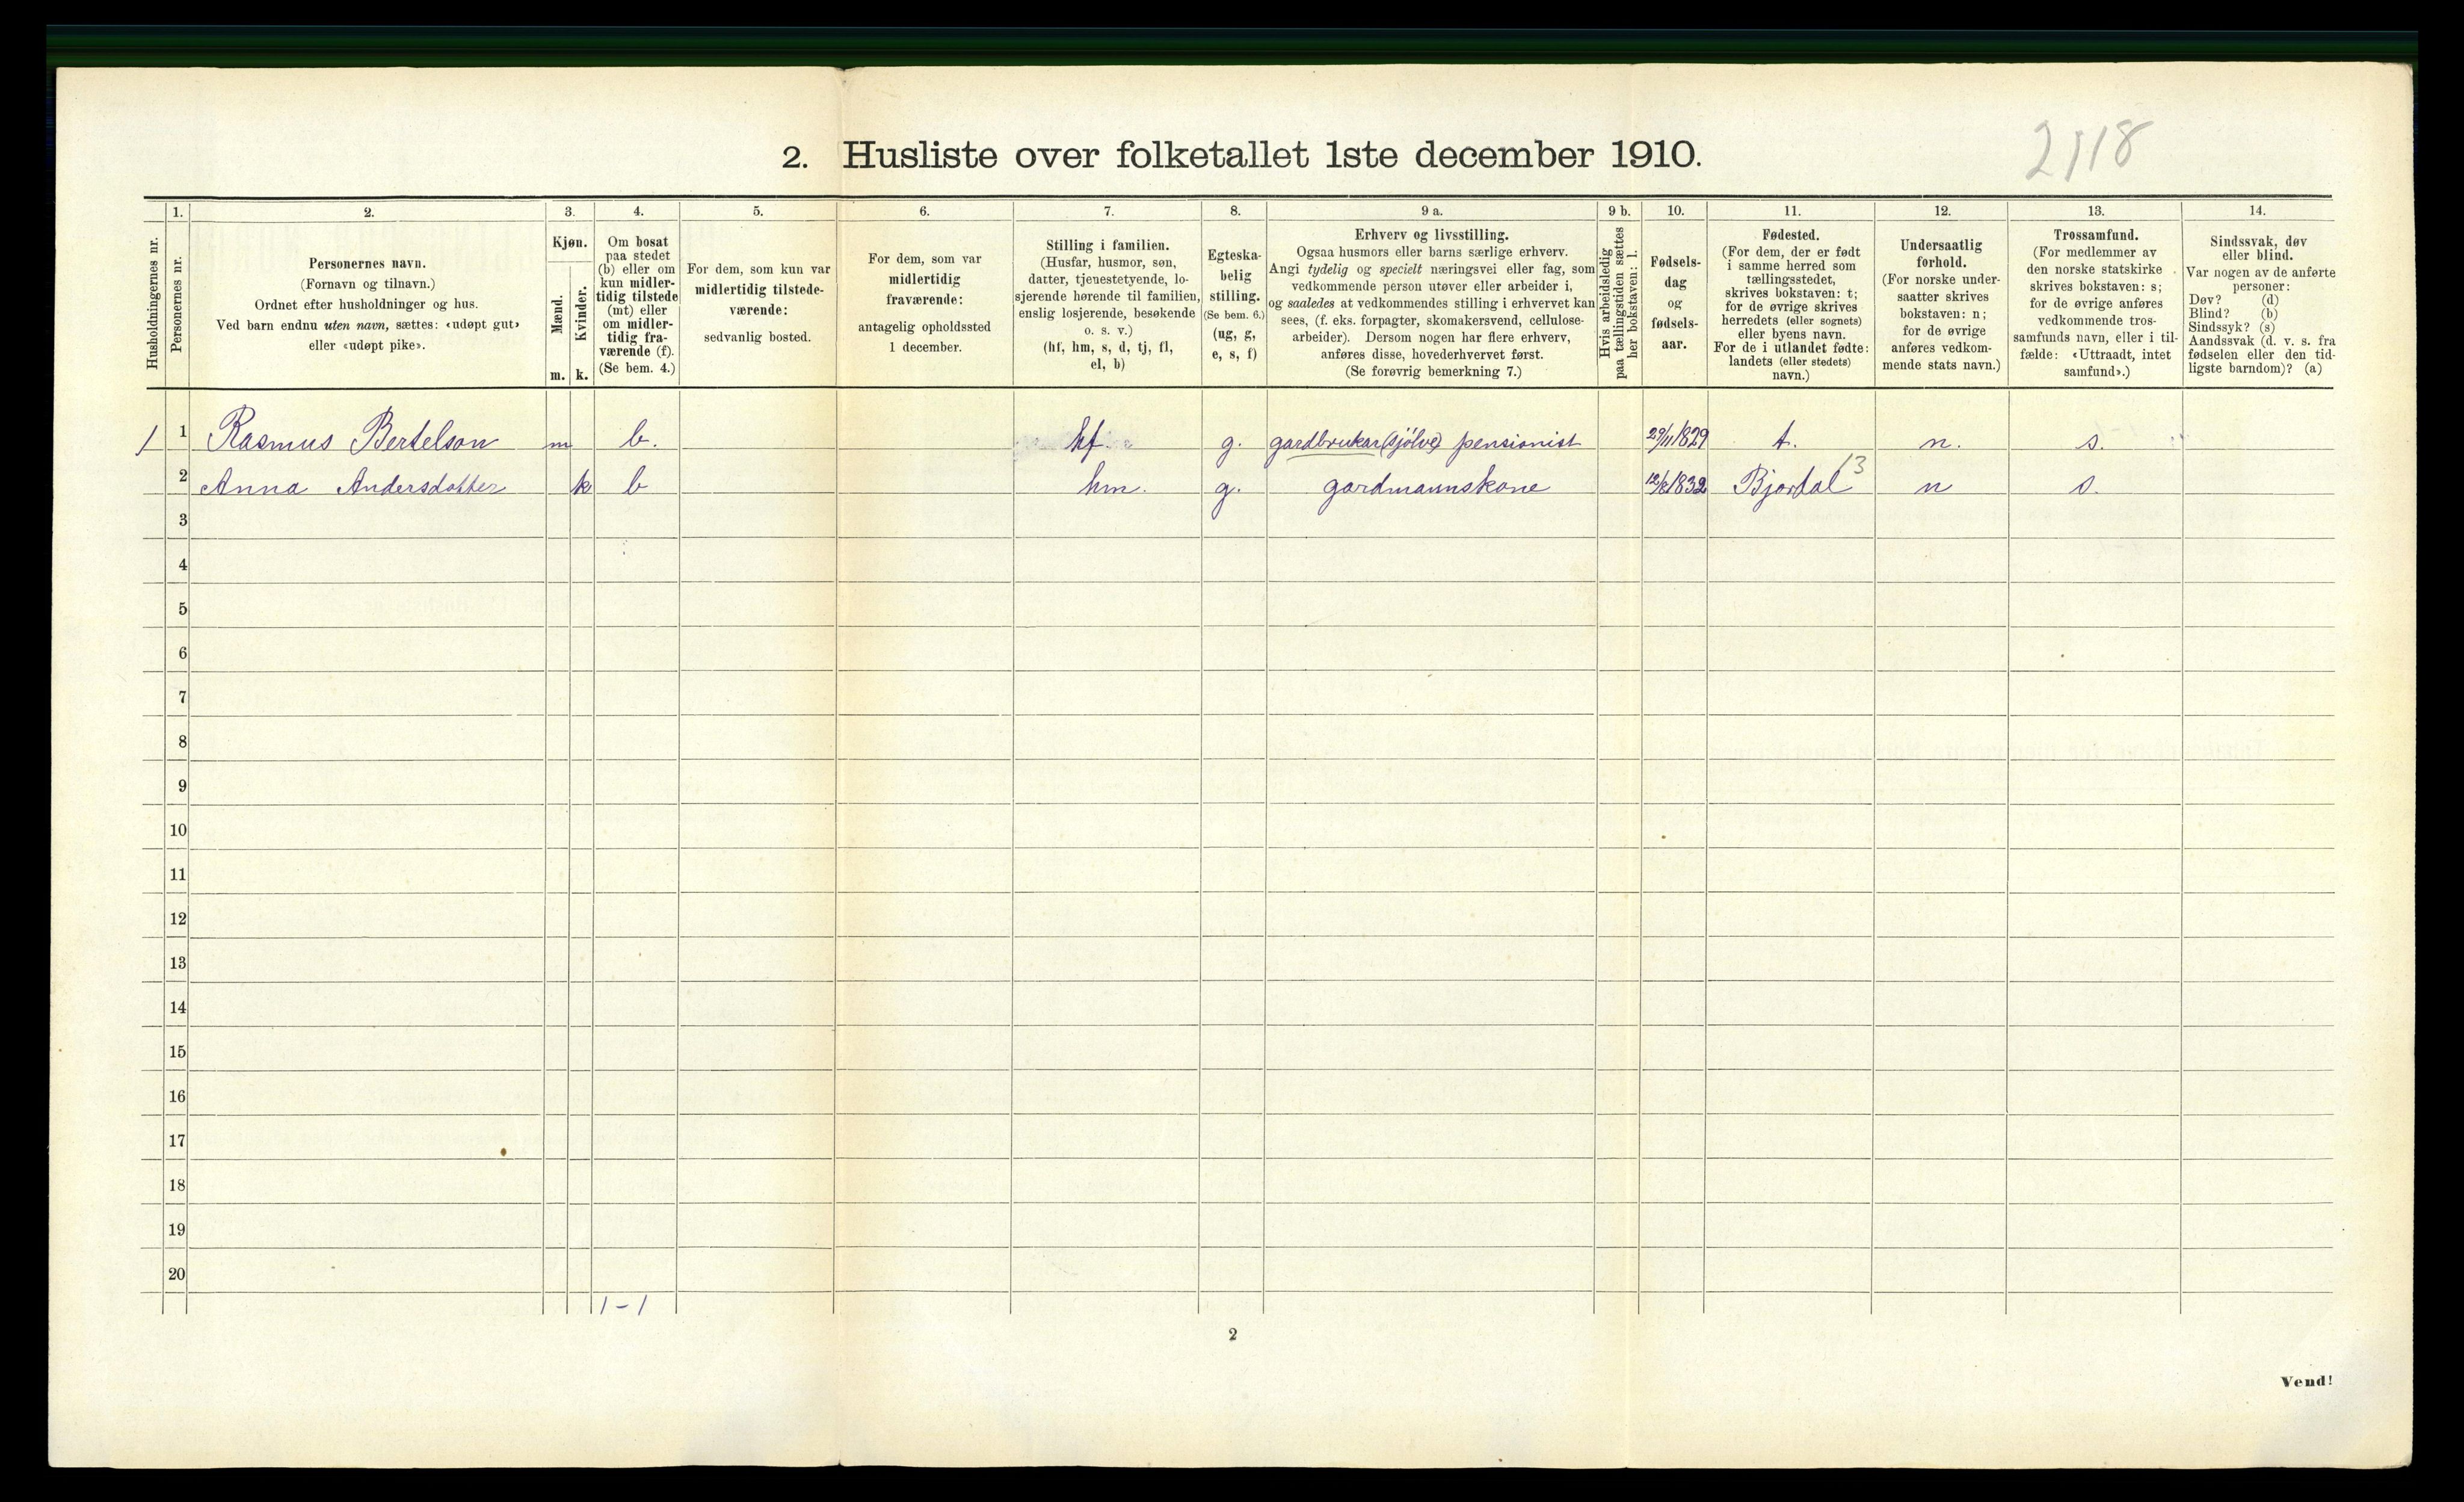 2118
2. Husliste over folketallet 1ste december 1910.
1. 2. 3. 4. 5. 6. 7. 8. 9 a. 9 b. 10. 11. 12. 13. 14.
Husholdningernes nr.
Personernes nr.
Personernes navn.
(Fornavn og tilnavn.)
Ordnet efter husholdninger og hus.
Ved barn endnu uten navn, sættes: «udøpt gut»
eller «udøpt pike».
Kjøn.
Mænd.
Kvinder.
m. k.
Om bosat
paa stedet
(b) eller om
kun midler-
tidig tilstede
(mt) eller
om midler-
tidig fra-
værende (f).
(Se bem. 4.)
For dem, som kun var
midlertidig tilstede-
værende:
sedvanlig bosted.
For dem, som var
midlertidig
fraværende:
antagelig opholdssted
1 december.
Stilling i familien.
(Husfar, husmor, søn,
datter, tjenestetyende, lo-
sjerende hørende til familien,
enslig losjerende, besøkende
o. s. v.)
(hf, hm, s, d, tj, fl,
el, b)
Egteska-
belig
stilling.
(Se bem. 6.)
(ug, g,
e, s, f)
Erhverv og livsstilling.
Ogsaa husmors eller barns særlige erhverv.
Angi tydelig og specielt næringsvei eller fag, som
vedkommende person utøver eller arbeider i,
og saaledes at vedkommendes stilling i erhvervet kan
sees, (f. eks. forpagter, skomakersvend, cellulose-
arbeider). Dersom nogen har flere erhverv,
anføres disse, hovederhvervet først.
(Se forøvrig bemerkning 7.)
Hvis arbeidsledig
paa tællingstiden sættes
her bokstaven: l.
Fødsels-
dag
og
fødsels-
aar.
Fødested.
(For dem, der er født
i samme herred som
tællingsstedet,
skrives bokstaven: t;
for de øvrige skrives
herredets (eller sognets)
eller byens navn.
For de i utlandet fødte:
landets (eller stedets)
navn.)
Undersaatlig
forhold.
(For norske under-
saatter skrives
bokstaven: n;
for de øvrige
anføres vedkom-
mende stats navn.)
Trossamfund.
(For medlemmer av
den norske statskirke
skrives bokstaven: s;
for de øvrige anføres
vedkommende tros-
samfunds navn, eller i til-
fælde: «Uttraadt, intet
samfund».)
Sindssvak, døv
eller blind.
Var nogen av de anførte
personer:
Døv? (d)
Blind? (b)
Sindssyk? (s)
Aandssvak (d. v. s. fra
fødselen eller den tid-
ligste barndom)? (a)
1 1 Rasmus Bertelson m b. hf. g. gardbrukar (sjölve) pensionist 29/11 1829 t. n. s.
2 Anna Andersdatter k b hm. g. gardmannskone 12/2 1832 Bjordal 13 n s.
3
4
5
6
7
8
9
10
11
12
13
14
15
16
17
18
19
20
1 - 1
2
Vend!